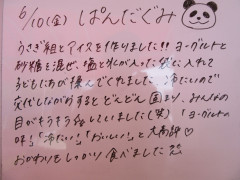 6/10(金) ぱんだぐみ
うさぎ組とアイスを作りました!! ヨーグルトと
砂糖を混ぜ、塩と氷が入った袋に入れて
子どもたちが揉んでくれました。冷たいので
交代しながらするとどんどん固まり、みんなの
目がキラキラしていました(笑)「ヨーグルトの
味」「冷たい」「おいしい」と大好評♡
おかわりもしっかり食べました